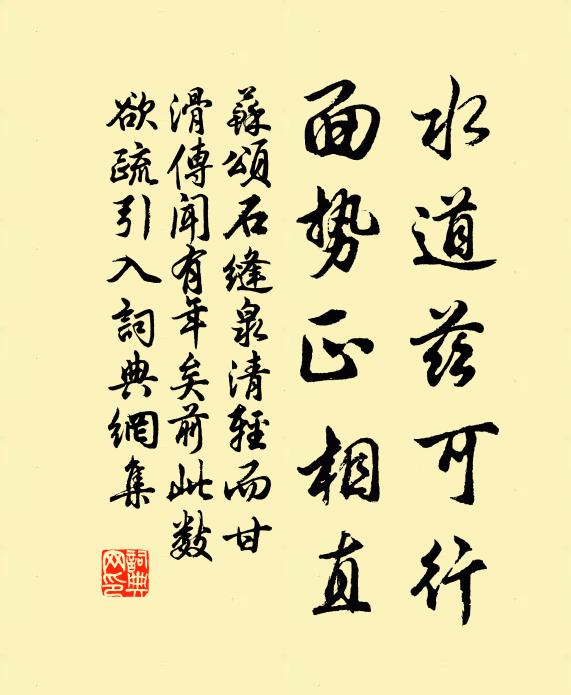 水道兹可行
面势正相直
蘇頌石縫泉清輕而甘
滑傳聞有年矣前此數
欲疏引入詞典網集
詞典网印